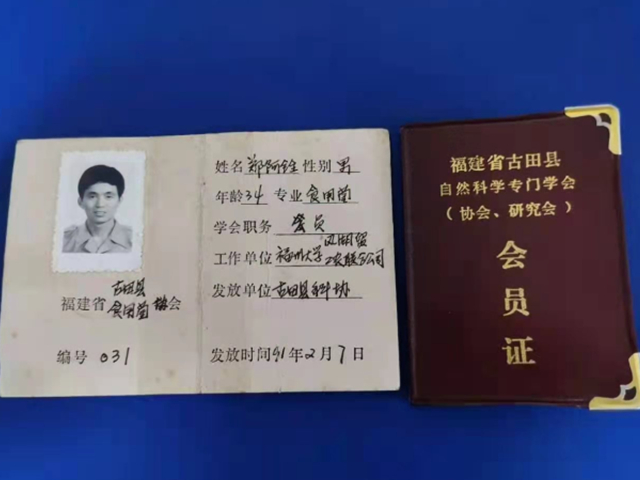 福建省古田县
食用菌 协会
编号 031
姓名 郑 铨 性别 男
年龄 34 专业 食用菌
学会职务 会员
工作单位 福州大学 公司
发放单位 古田县科协
发放时间 91年2月7日
福建省古田县
自然科学专门学会
(协会、研究会)
会员证